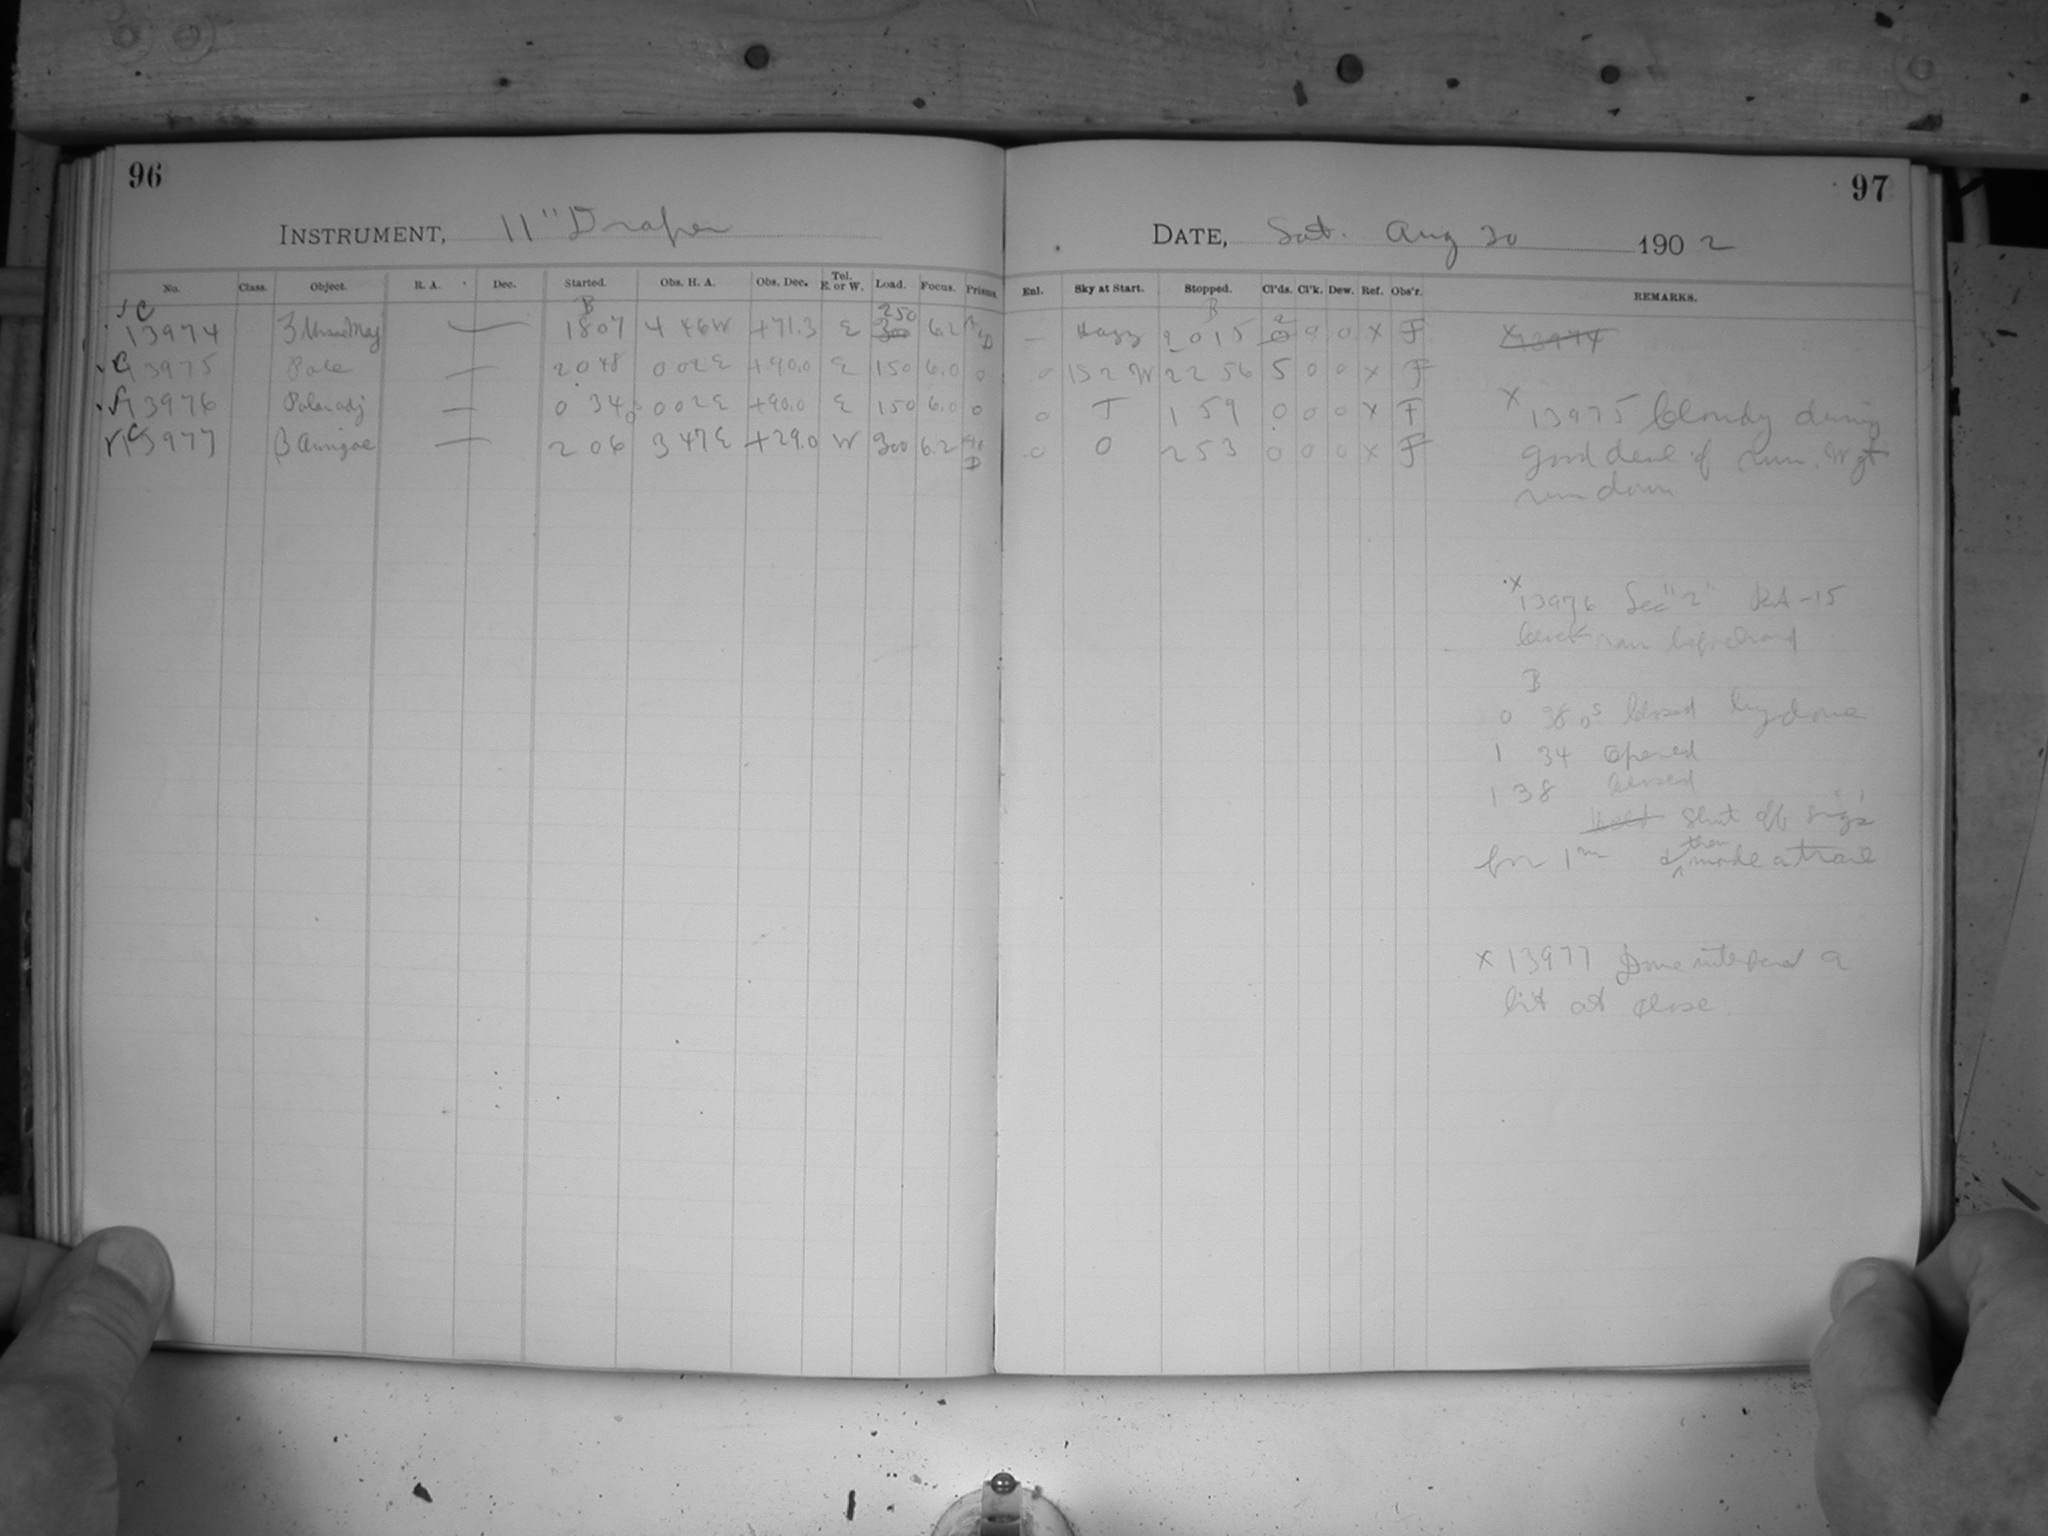 96
INSTRUMENT, 11" Draper
No. Class. Object. R. A. Dec. Started. Obs. H. A. Obs. Dec. Tel. E. or W. Load. Focus. Prisms
13974 — B 18 07 4 46 W +71.3 E 250 300 6.2
13975 Pole — 20 48 0 02 E +90.0 E 150 6.0 0
13976 — 0 34 0 0 02 E +90.0 E 150 6.0 0
13977 β Aurigae — 2 06 3 47 E +29.0 W 300 6.2
97
DATE, Sat. Aug 30 1902
Enl. Sky at Start. Stopped. Cl'ds. Cl'k. Dew. Ref. Obs'r. REMARKS.
— Hazy B 20 15 2 0 0 0 x F x 13974
0 22 56 5 0 0 x F
0 T 1 59 0 0 0 x F x 13975 Cloudy during
0 0 2 53 0 0 0 x F good deal of run. Wgt
run down
x 13976 Sec "2" RA -15
clock ran
B
0 38 0s closed by dome
1 34 opened
1 38 closed
shut off
for 1m & then made a trail
x 13977 Dome interfered a
bit at close.